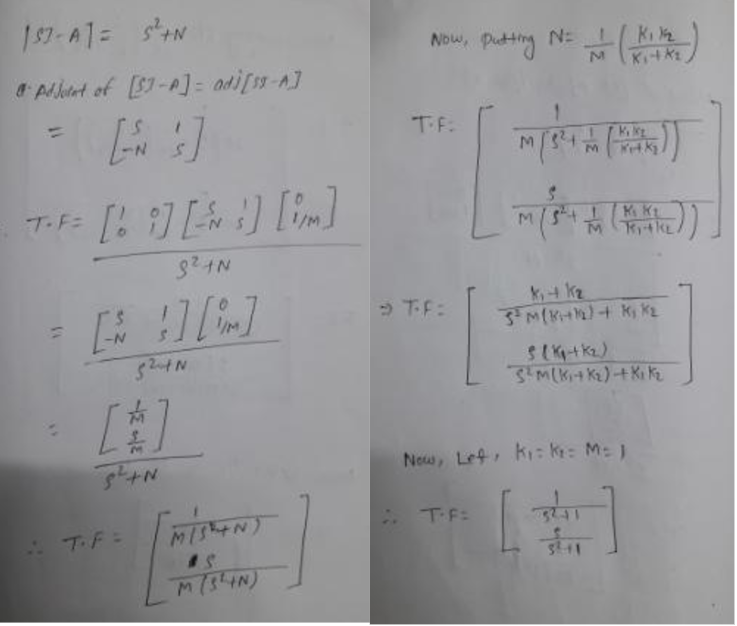 |SI-A| = S²+N
Adjoint of [SI-A] = adj[SI-A]
= [S 1; -N S]
T.F = [1 0; 0 1] [S 1; -N S] [0; 1/M] / S²+N
= [S 1; -N S] [0; 1/M] / S²+N
= [1/M; S/M] / S²+N
∴ T.F = [1 / M(S²+N); S / M(S²+N)]
Now, putting N = 1/M (K₁K₂ / K₁+K₂)
T.F = [1 / M(S² + 1/M (K₁K₂ / K₁+K₂)); S / M(S² + 1/M (K₁K₂ / K₁+K₂))]
⇒ T.F = [K₁+K₂ / S²M(K₁+K₂) + K₁K₂; S(K₁+K₂) / S²M(K₁+K₂)+K₁K₂]
Now, Let, K₁ = K₂ = M = 1
∴ T.F = [1 / S²+1; S / S²+1]